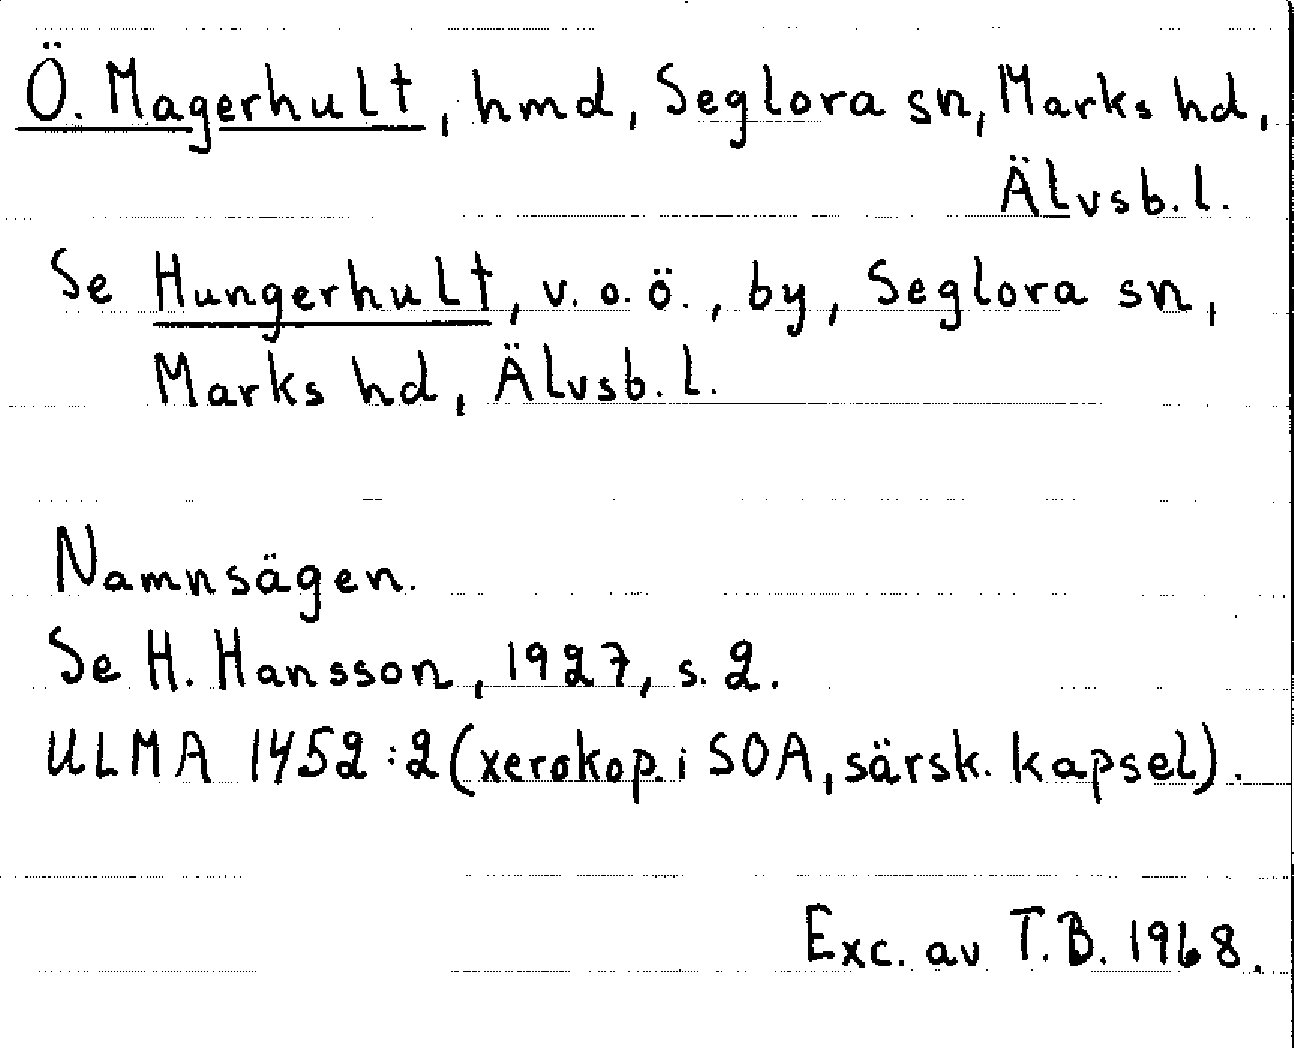 Ö. Magerhult, hmd, Seglora sn, Marks hd,
Älvsb. l.
Se Hungerhult, v. o. ö., by, Seglora sn,
Marks hd, Älvsb. l.
Namnsägen.
Se H. Hansson, 1927, s. 2.
ULMA 1452:2 (xerokop. i SOA, särsk. kapsel).
Exc. av T.B. 1968.